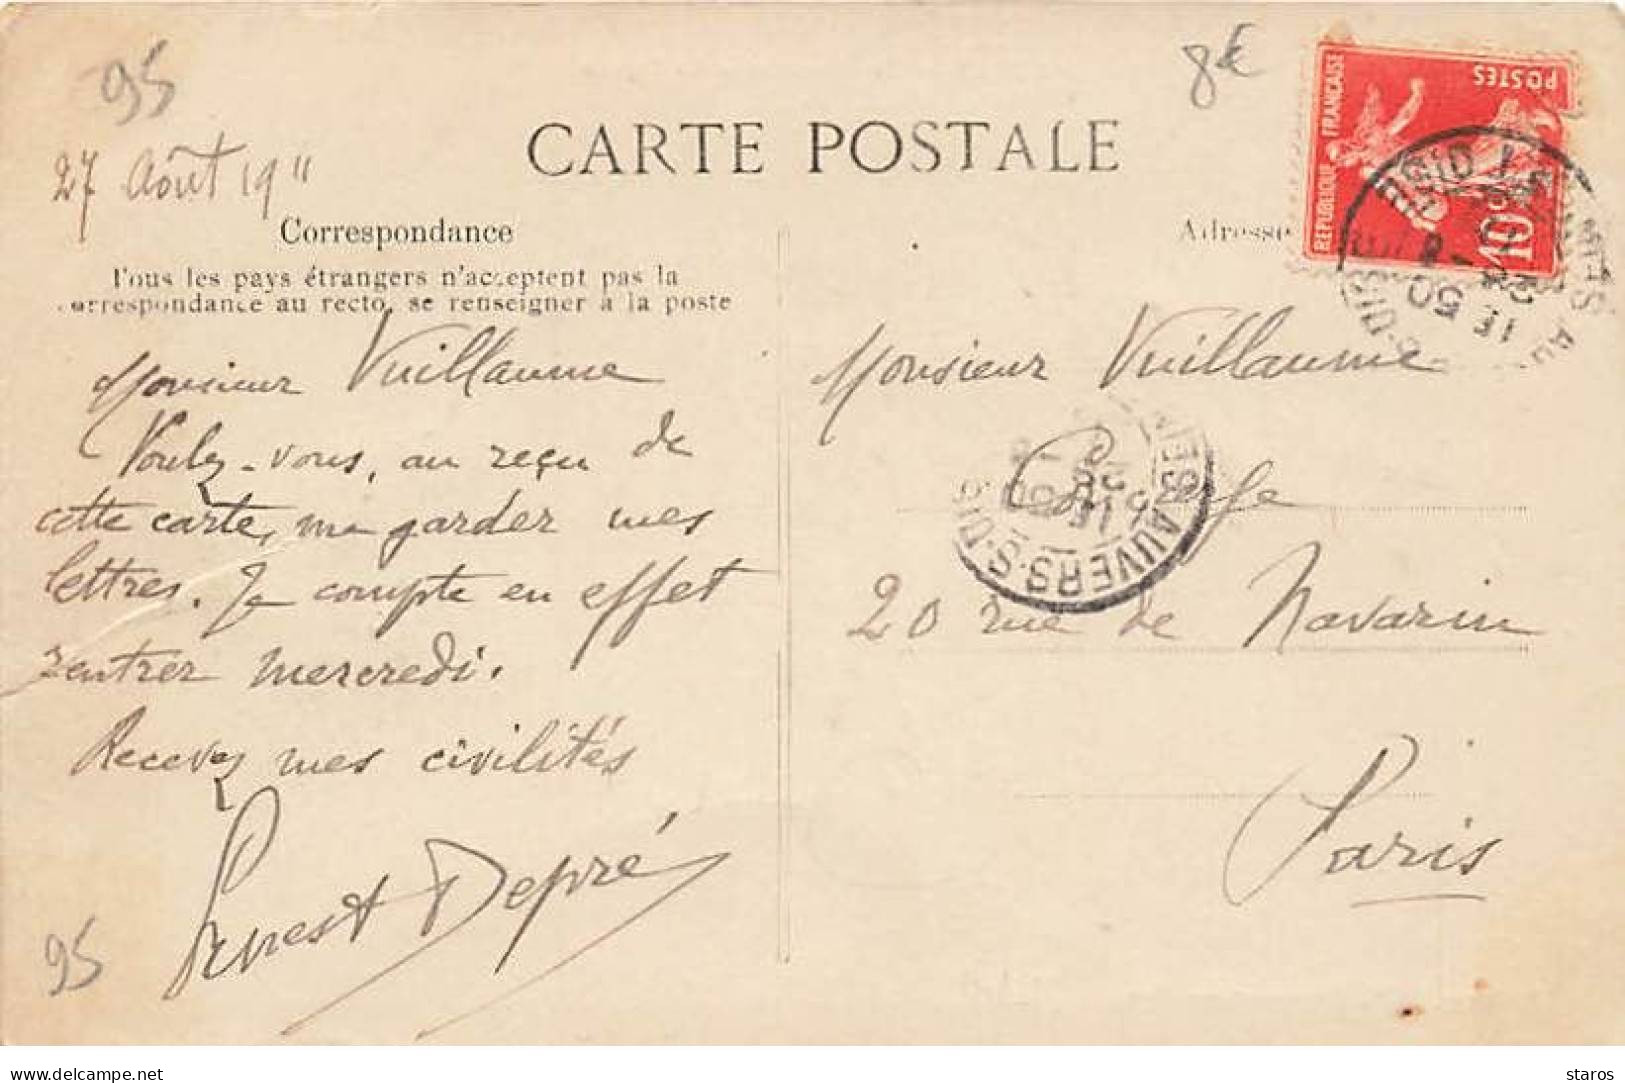 95
8€
27 Août 19 11
CARTE POSTALE
Correspondance
Adresse
Tous les pays étrangers n'acceptent pas la
correspondance au recto, se renseigner à la poste
REPUBLIQUE FRANÇAISE
POSTES
10c
Monsieur Vuillaume
Voulez-vous, au reçu de
cette carte, me garder mes
lettres. Je compte en effet
rentrer mercredi.
Recevez mes civilités
Ernest Depré
95
Monsieur Vuillaume
Concierge
AUVERS-S-OISE
20 rue de Navarin
Paris
delcampe.net
staros